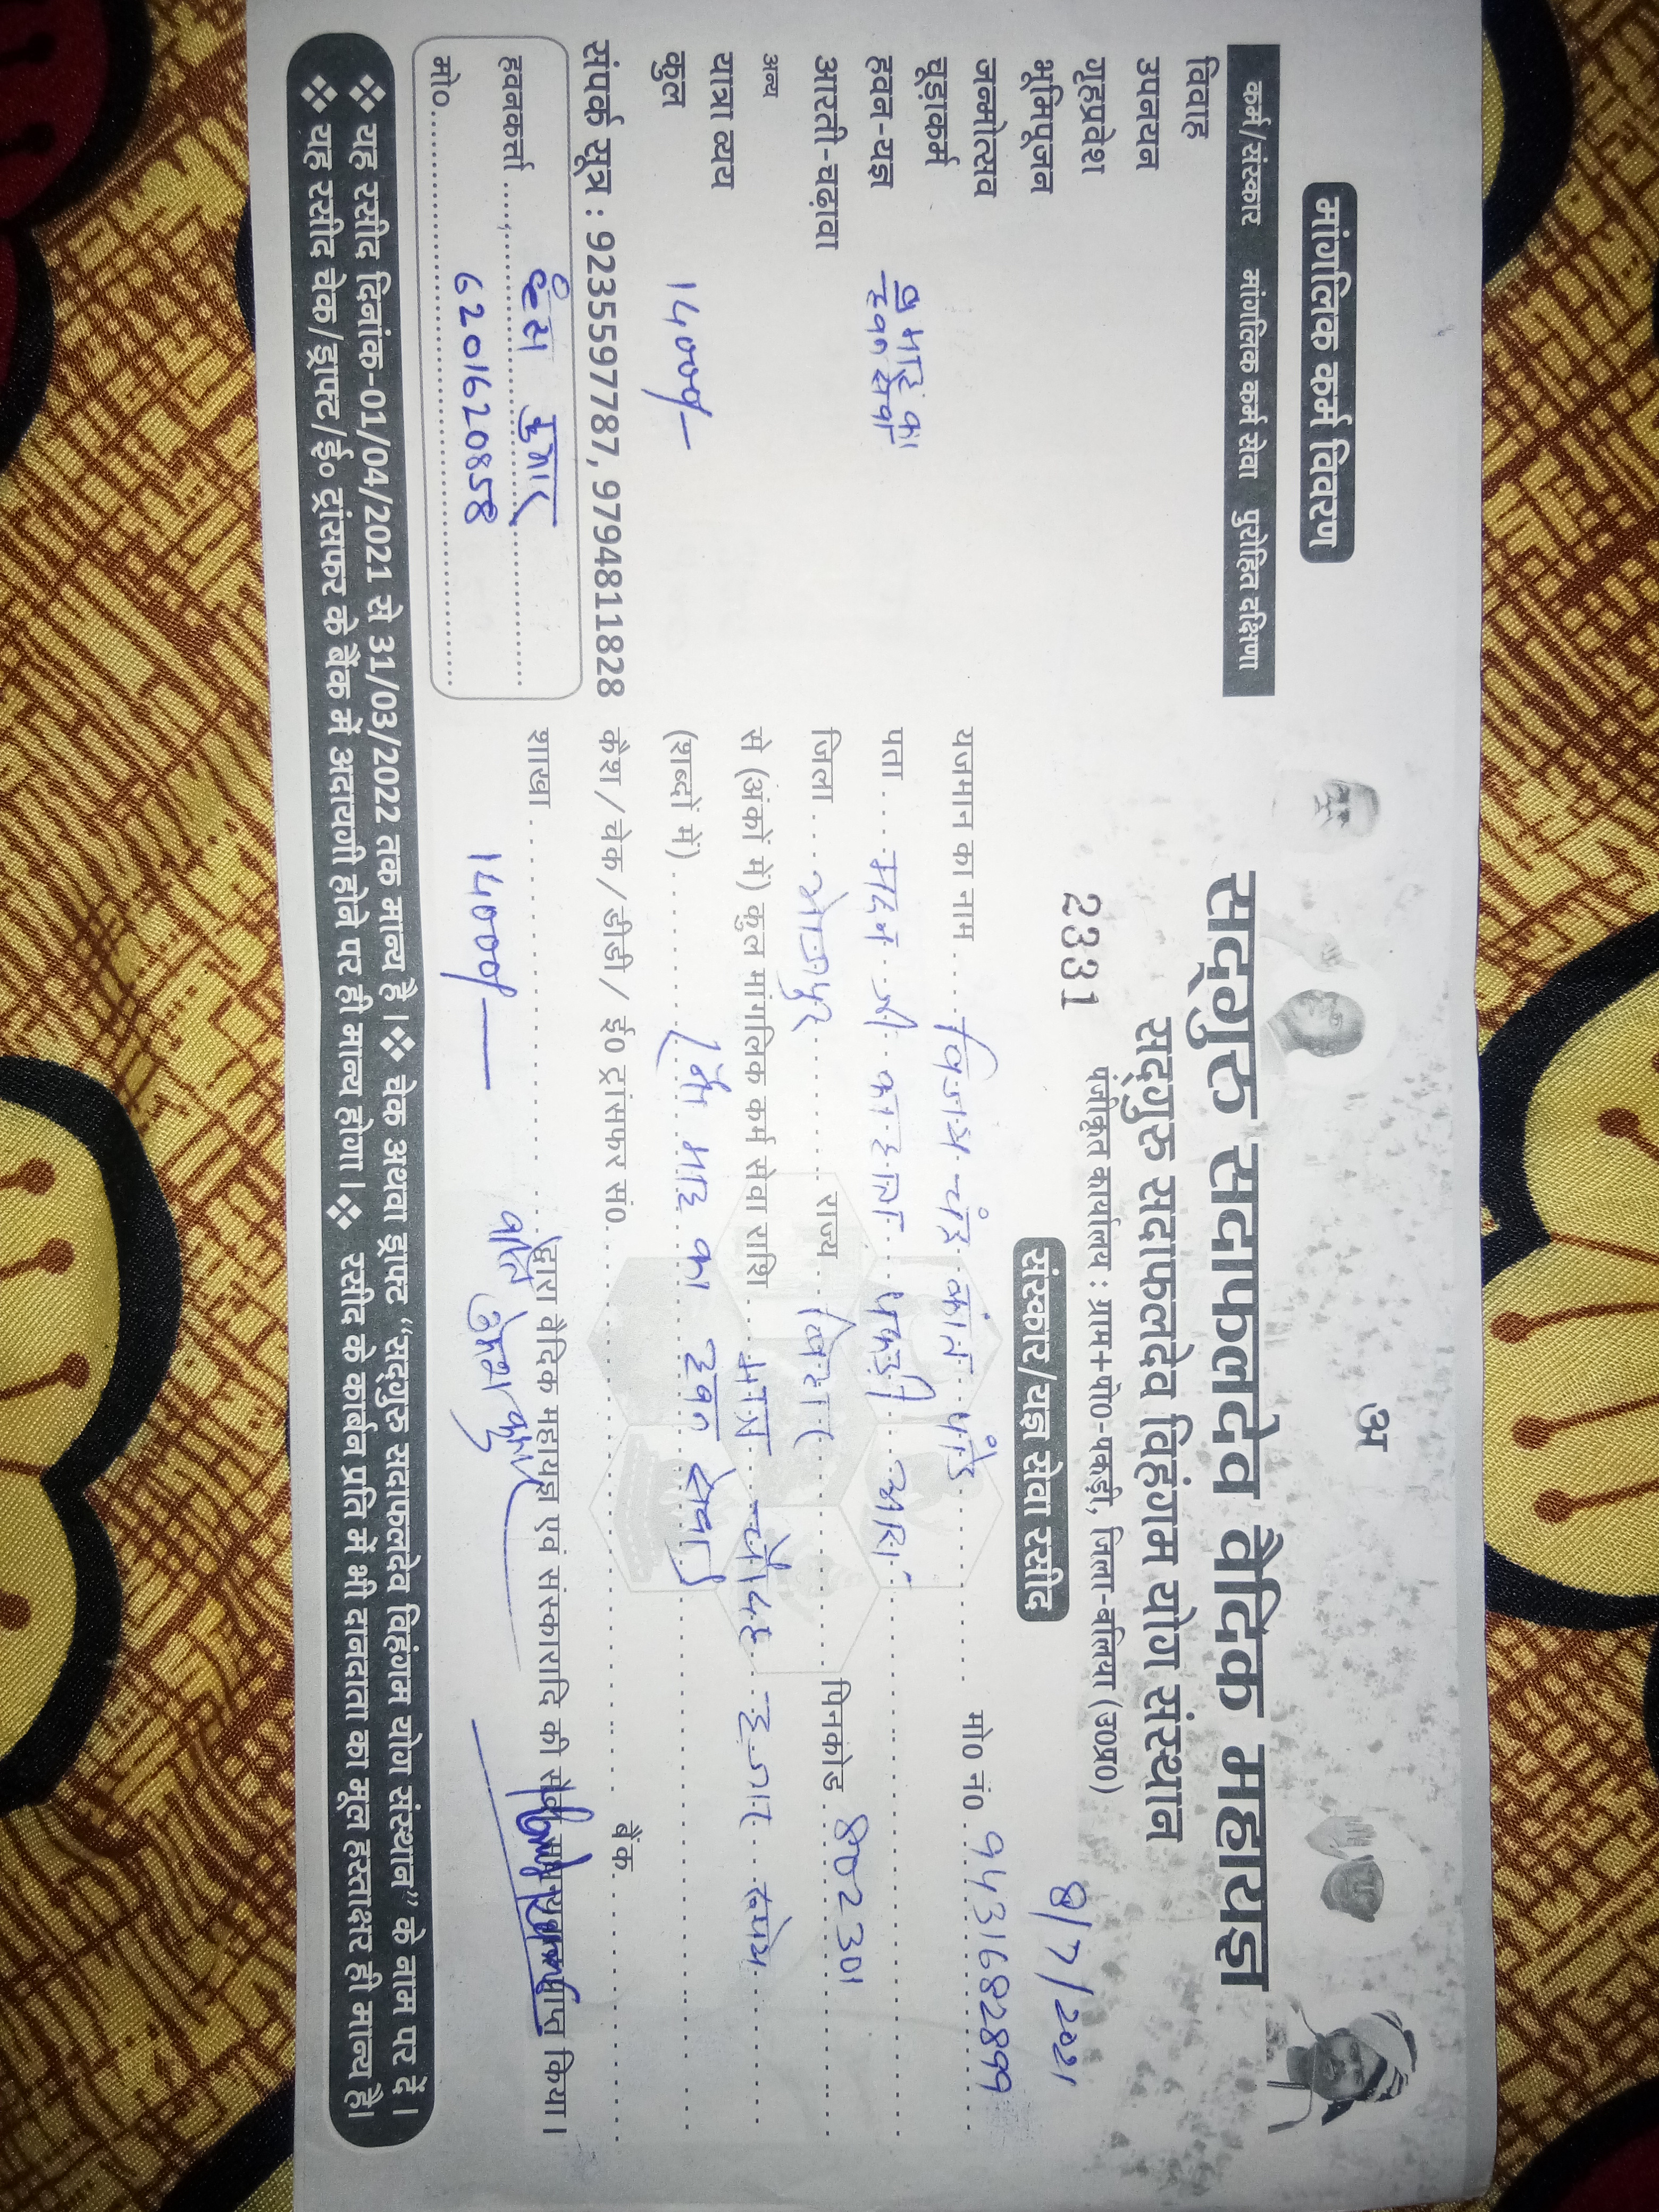 अ
सद्गुरु सदाफलदेव वैदिक महायज्ञ
सद्गुरु सदाफलदेव विहंगम योग संस्थान
पंजीकृत कार्यालय : ग्राम+पो०-पकड़ी, जिला-बलिया (उ०प्र०)
2331
संस्कार/यज्ञ सेवा रसीद
8/7/2021
यजमान का नाम विजय चंद्र कांत पांडे मो० नं० 9431682899
पता मदन जी का हाता पकड़ी आरा
जिला भोजपुर राज्य बिहार पिनकोड 802301
से (अंकों में) कुल मांगलिक कर्म सेवा राशि मात्र चौदह हजार रूपये
(शब्दों में) माह का हवन सेवा
कैश / चेक / डीडी / ई० ट्रांसफर सं० बैंक
शाखा द्वारा वैदिक महायज्ञ एवं संस्कारादि की प्राप्त किया।
14000/-
मांगलिक कर्म विवरण
कर्म/संस्कार मांगलिक कर्म सेवा पुरोहित दक्षिणा
विवाह
उपनयन
गृहप्रवेश
भूमिपूजन
जन्मोत्सव
चूड़ाकर्म
हवन-यज्ञ माह का हवन सेवा
आरती-चढ़ावा
अन्य
यात्रा व्यय
कुल 14000/-
संपर्क सूत्र : 9235597787, 9794811828
हवनकर्त्ता कुमार
मो० 6201620858
❖ यह रसीद दिनांक-01/04/2021 से 31/03/2022 तक मान्य है। ❖ चेक अथवा ड्राफ्ट “सद्गुरु सदाफलदेव विहंगम योग संस्थान” के नाम पर दें।
❖ यह रसीद चेक/ड्राफ्ट/ई० ट्रांसफर के बैंक में अदायगी होने पर ही मान्य होगा। ❖ रसीद के कार्बन प्रति में भी दानदाता का मूल हस्ताक्षर ही मान्य है।